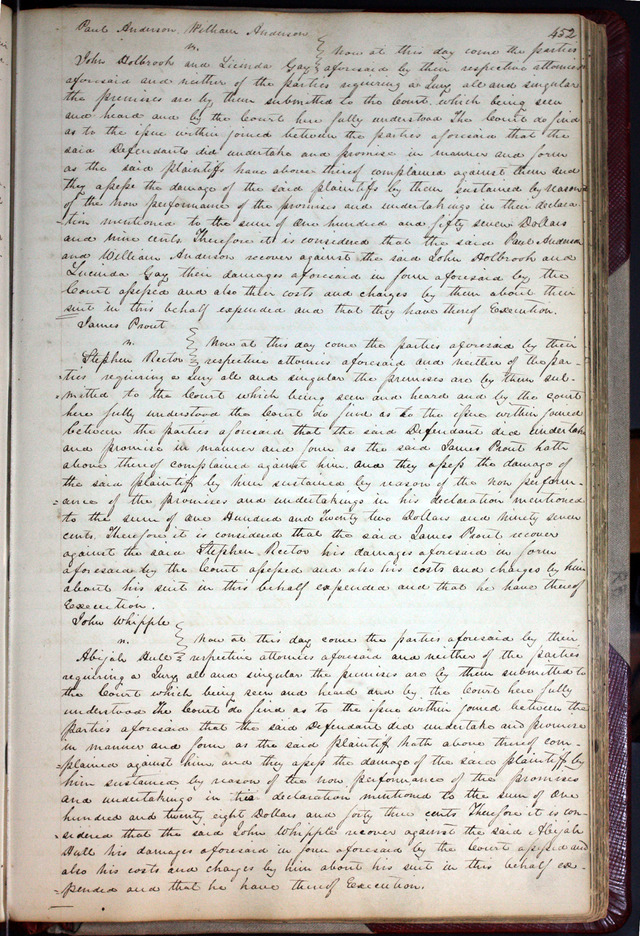 452
Paul Anderson, William Anderson
vs. } Now at this day come the parties
John Holbrook and Lucinda Gay } aforesaid by their respective attornies
aforesaid and neither of the parties requiring a Jury all and singular
the premises are by them submitted to the Court, which being seen
and heard and by the Court here fully understood The Court do find
as to the issue within joined between the parties aforesaid that the
said Defendants did undertake and promise in manner and form
as the said plaintiffs have above thereof complained against them and
they assess the damage of the said plaintiffs by them sustained by reason
of the non performance of the promises and undertakings in their declara
tion mentioned to the sum of One hundred and fifty seven Dollars
and nine cents. Therefore it is considered that the said Paul Anderson
and William Anderson recover against the said John Holbrook and
Lucinda Gay their damages aforesaid in form aforesaid by the
Court assessed and also their costs and charges by them about their
suit in this behalf expended and that they have thereof Execution.
James Prout
vs. } Now at this day come the parties aforesaid by their
Stephen Rector } respective attornies aforesaid and neither of the par-
ties requiring a Jury all and singular the premises are by them sub-
mitted to the Court which being seen and heard and by the court
here fully understood the Court do find as to the issue within joined
between the parties aforesaid that the said Defendant did undertake
and promise in manner and form as the said James Prout hath
above thereof complained against him, and they assess the damage of
the said plaintiff by him sustained by reason of the non perform-
ance of the promises and undertakings in his declaration mentioned
to the sum of One Hundred and Twenty two Dollars and ninety seven
cents. Therefore it is considered that the said James Prout recover
against the said Stephen Rector his damages aforesaid in form
aforesaid by the Court assessed and also his costs and charges by him
about his suit in this behalf expended and that he have thereof
Execution.
John Whipple
vs. } Now at this day come the parties aforesaid by their
Abijah Hull } respective attornies aforesaid and neither of the parties
requiring a Jury all and singular the premises are by them submitted to
the Court which being seen and heard and by the Court here fully
understood The Court do find as to the issue within joined between the
parties aforesaid that the said Defendant did undertake and promise
in manner and form as the said plaintiff hath above thereof com-
plained against him and they assess the damage of the said plaintiff by
him sustained by reason of the non performance of the promises
and undertakings in his declaration mentioned to the sum of One
hundred and twenty eight Dollars and forty three cents Therefore it is con-
sidered that the said John Whipple recover against the said Abijah
Hull his damages aforesaid in form aforesaid by the Court assessed and
also his costs and charges by him about his suit in this behalf ex-
pended and that he have thereof Execution.